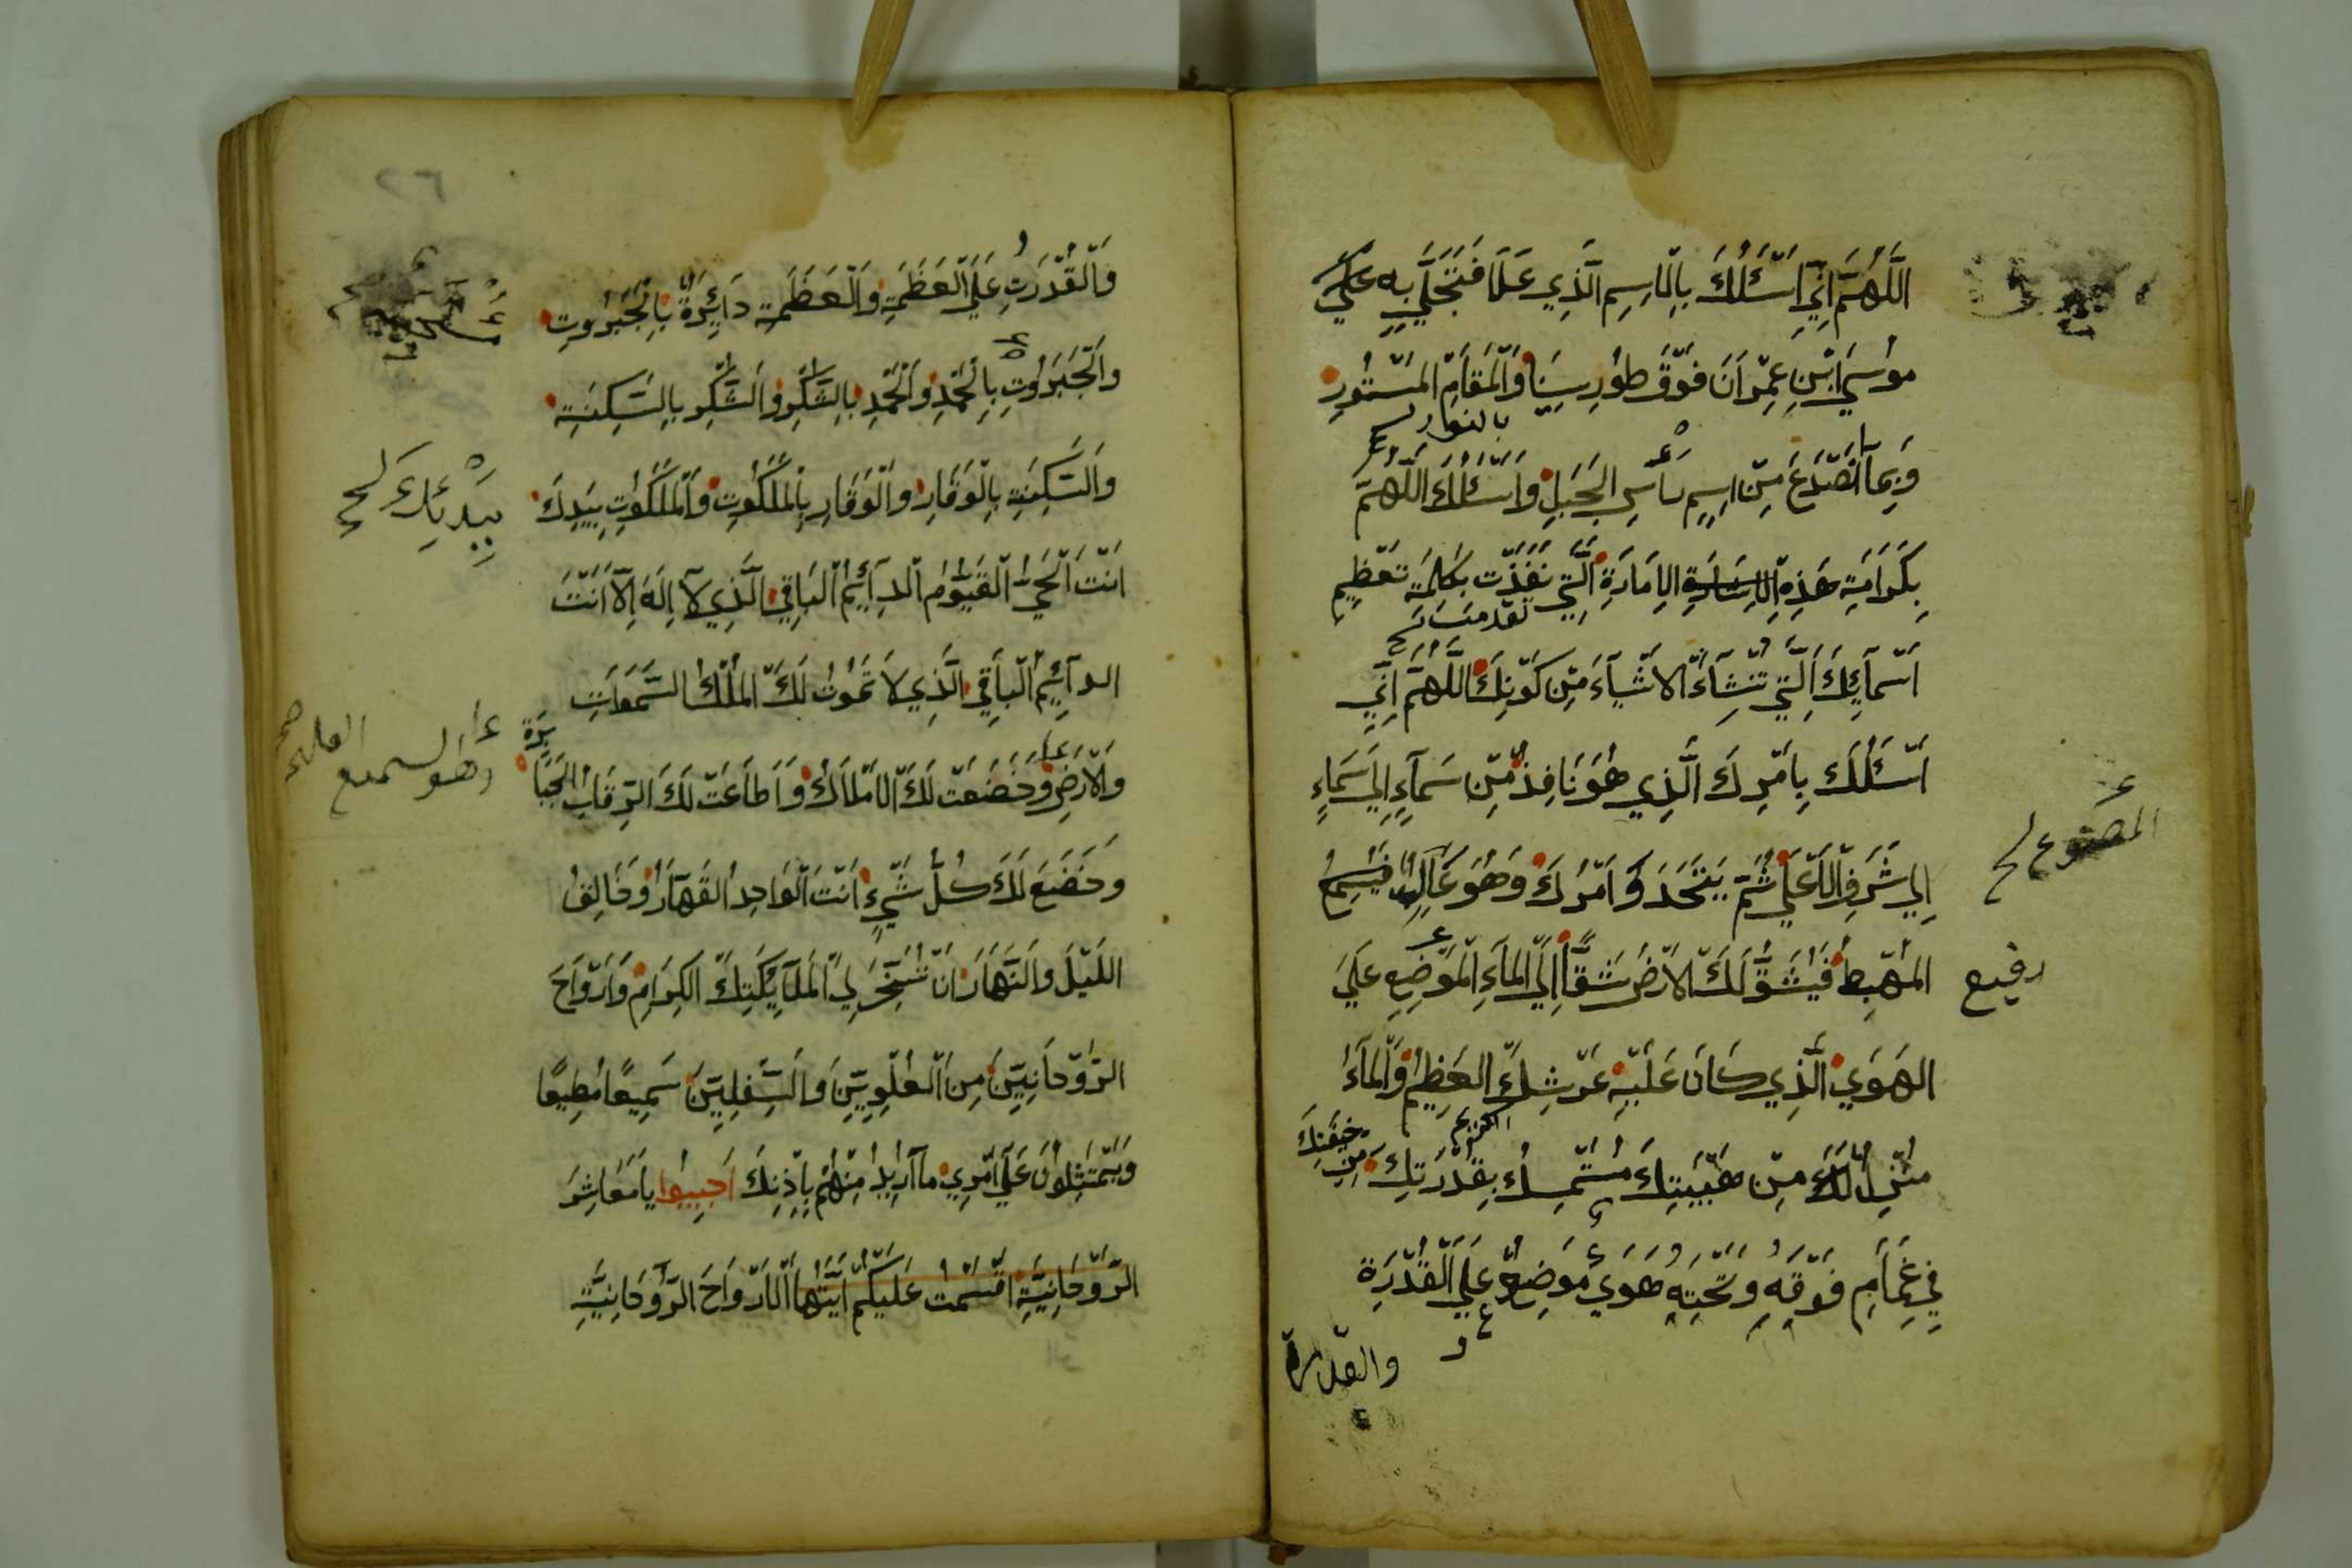 اَللَّهُمَّ اِنِّي اَسْئَلُكَ بِالْاِسِمِ الَّذِي عَلَا فَتَجَلَّي بِهِ عَلَي
مُوسَي ابْنِ عِمْرَانَ فَوْقَ طُورِ سِينَا وَالْمَقَامِ الْمَسْتُورِ
بالنور
وَبِمَا انْصَدَعَ مِنْ اِسِمٍ رَأْسِ الْجَبَلِ وَاَسْئَلُكَ اللَّهُمَّ
بِكَرَامَةِ هَذِهِ الْاِمَارَةِ الَّتِي نَفَذَتْ بِكَلِمَةِ تَعْظِيمِ
تقدمت
اَسْمَآئِكَ الَّتِي تُنْشِآءُ الْاَشْيَآءَ مِنْ كَوْنِكَ اللَّهُمَّ اِنِّي
اَسْئَلُكَ بِاَمْرِكَ الَّذِي هُوَ نَافِذٌ مِنْ سَمَآءٍ اِلَي سَمَاءٍ
اِلَي شَرَفِ الْاَعْلَي ثُمَّ يَتَحَدَّ وَ اَمْرُكَ وَهُوَ عَالِي
المصنوع
الْمَهْبِطِ فَيَشُقُّ لَكَ الْاَرْضَ شَقًّا اِلَي الْمَآءِ الْمَوْضِعِ عَلَي
رفيع
الْهَوَي الَّذِي كَانَ عَلَيْهِ عَرْشِكَ الْعَظِيمُ وَالْمَآءُ
الكريم
مِنْ هَيْبَتِكَ مُسْتَمْسِكُ بِقُدْرَتِكَ مِنْ خِيفَتِكَ
فِي غَمَامٍ فَوْقَهُ وَتَحْتِهِ هَوَي مَوَضِعٌ عَلَي الْقُدْرَةِ
والقدرة
٢٦
وَالْقُدْرَتِ عَلَي الْعَظَمَةِ وَالْعَظَمَةِ دَآئِرَةٌ بِالْجَبَرُوتِ
وَالْجَبَرُوتِ بِالْحَمْدِ وَالْحَمْدِ بِالشُّكْرِ وَالشُّكْرِ بِالسَّكِينَةِ
وَالسَّكِينَةِ بِالْوَقَارِ وَالْوَقَارِ بِالْمَلَكُوتِ وَالْمَلَكُوتِ بِيَدِكَ
اَنْتَ الْحَيُّ الْقَيُّومُ الْدَآئِمُ الْبَاقِي الَّذِي لَآ اِلَهَ اِلَّآ اَنْتَ
الدَآئِمُ الْبَاقِي الَّذِي لَا تَمُوتُ لَكَ الْمُلْكُ السَّمَوَاتِ
وَالْاَرْضِ وَخَضَعَتْ لَكَ الْاَمْلَاكُ وَاَطَاعَتْ لَكَ الرِّقَابُ الْجَبَابِرَةِ
وهو السميع العليم صح
وَخَضَعَ لَكَ كُلُّ شَيْءٍ اَنْتَ الْوَاحِدُ الْقَهَّارُ وَخَالِقُ
اللَّيْلَ وَالنَّهَارَ اَنْ تُسَخِّرَ لِي الْمَلَآئِكَتِكَ الْكِرَامِ وَاَرْوَاحَ
الرَّوْحَانِيِّينَ مِنَ الْعُلْوِيِّينَ وَالسِّفْلِيِّينَ سَمِيعًا مُطِيعًا
وَيَمْتَثِلُونَ عَلَي اَمْرِي مَآ اُرِيدُ مِنْهُمْ بِاِذْنِكَ اَجِيبُوا يَامَعَاشِرَ
الرَّوْحَانِيَّةِ اَقْسَمْتُ عَلَيْكُمْ اَيَّتُهَا الْاَرْوَاحَ الرَّوْحَانِيَّةِ